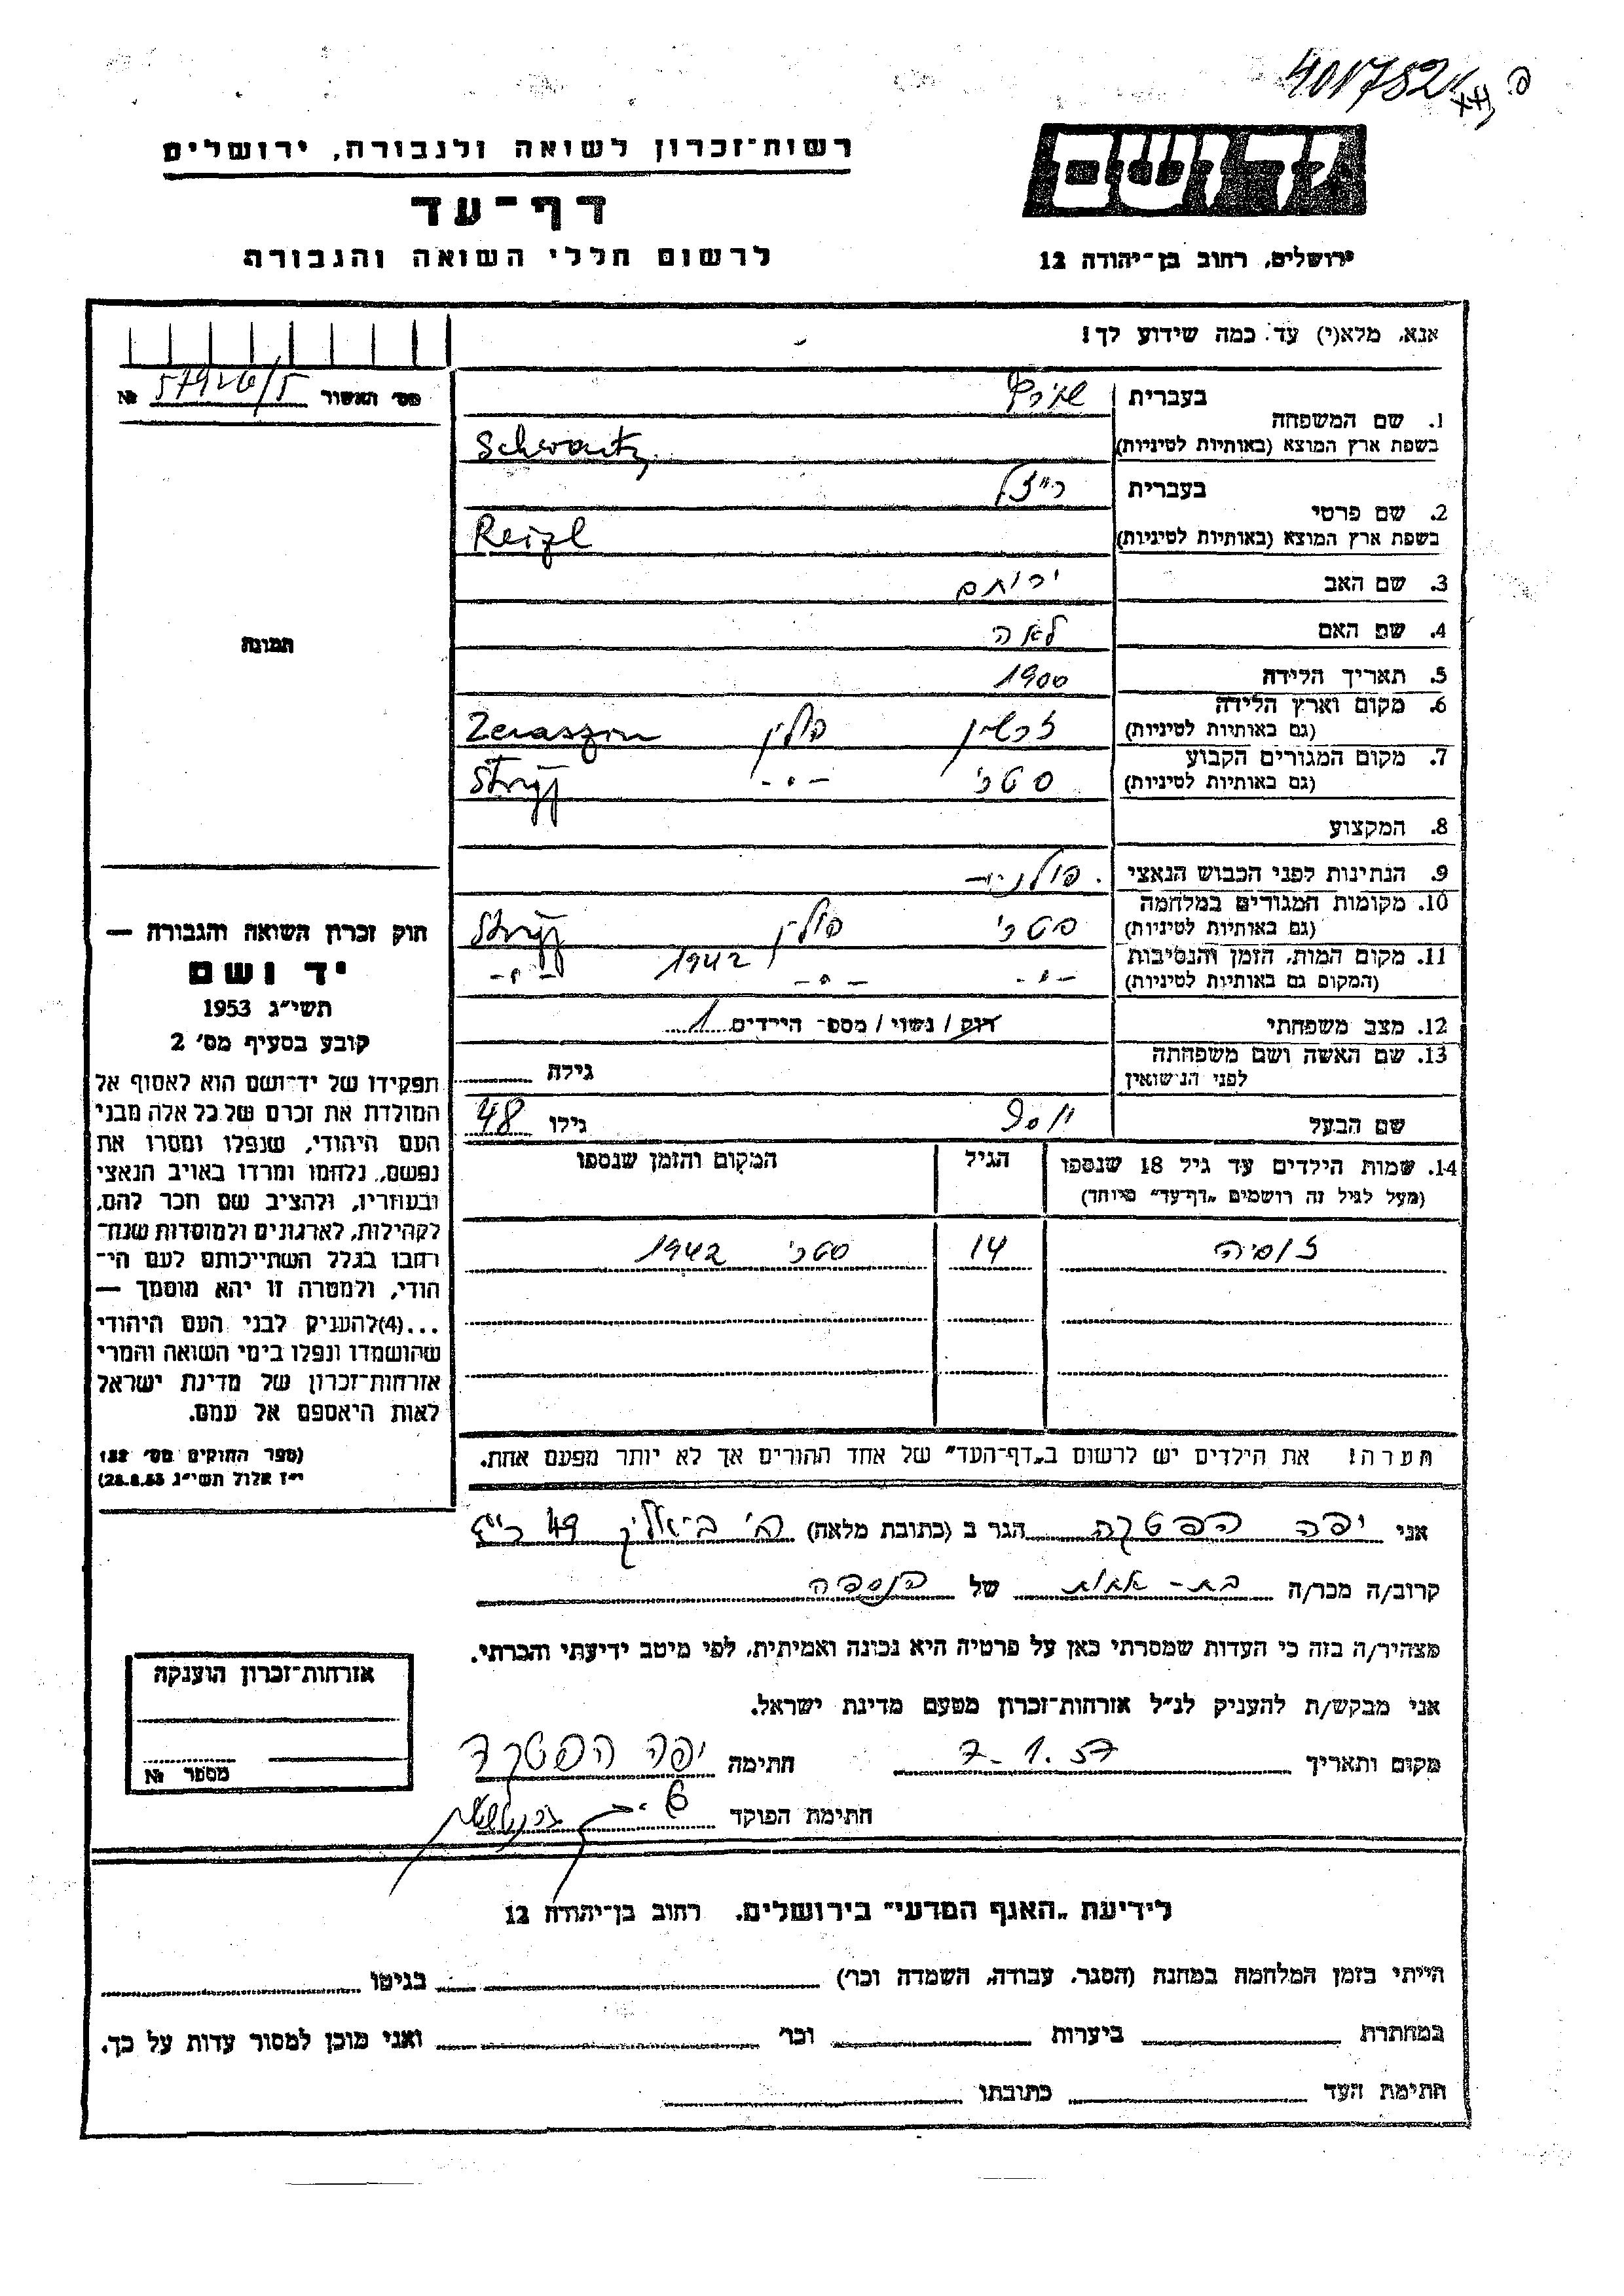 4017824
יד ושם
ירושלים, רחוב בן־יהודה 12
רשות־זכרון לשואה ולגבורה, ירושלים
דף־עד
לרשום חללי השואה והגבורה
אנא, מלא(י) עד כמה שידוע לך!
מס׳ האשור 57926/5 №
תמונה
1. שם המשפחה
בעברית שוורץ
בשפת ארץ המוצא (באותיות לטיניות) Schwartz
2. שם פרטי
בעברית רייזל
בשפת ארץ המוצא (באותיות לטיניות) Reizl
3. שם האב ירוחם
4. שם האם לאה
5. תאריך הלידה 1900
6. מקום וארץ הלידה
(גם באותיות לטיניות) פולין
7. מקום המגורים הקבוע
(גם באותיות לטיניות) סטרי -״- Stryj
8. המקצוע
9. הנתינות לפני הכבוש הנאצי פולנית
10. מקומות המגורים במלחמה
(גם באותיות לטיניות) סטרי פולין Stryj
11. מקום המות, הזמן והנסיבות
(המקום גם באותיות לטיניות) -״- -״- 1942 -״-
12. מצב משפחתי רוק / נשוי / מספר הילדים 1
13. שם האשה ושם משפחתה
לפני הנישואין גילה
שם הבעל יוסף גילו 48
14. שמות הילדים עד גיל 18 שנספו
(מעל לגיל זה רושמים „דף־עד״ מיוחד)
הגיל
המקום והזמן שנספו
זוסיה 14 סטרי 1942
הערה! את הילדים יש לרשום ב„דף־העד״ של אחד ההורים אך לא יותר מפעם אחת.
חוק זכרון השואה והגבורה —
יד ושם
תשי״ג 1953
קובע בסעיף מס׳ 2
תפקידו של יד־ושם הוא לאסוף אל
המולדת את זכרם של כל אלה מבני
העם היהודי, שנפלו ומסרו את
נפשם, נלחמו ומרדו באויב הנאצי
ובעוזריו, ולהציב שם וזכר להם,
לקהילות, לארגונים ולמוסדות שנח־
רבו בגלל השתייכותם לעם הי־
הודי, ולמטרה זו יהא מוסמך —
...(4)להעניק לבני העם היהודי
שהושמדו ונפלו בימי השואה והמרי
אזרחות־זכרון של מדינת ישראל
לאות היאספם אל עמם.
(ספר החוקים מס׳ 132
י״ז אלול תשי״ג 28.8.53)
אני יפה הפטקה הגר ב (כתובת מלאה) רח׳ ביאליק 49
קרוב/ה מכר/ה בת-אחות של הנספה
מצהיר/ה בזה כי העדות שמסרתי כאן על פרטיה היא נכונה ואמיתית, לפי מיטב ידיעתי והכרתי.
אני מבקש/ת להעניק לנ״ל אזרחות־זכרון מטעם מדינת ישראל.
מקום ותאריך 7.1.57 חתימה יפה
חתימת הפוקד
אזרחות־זכרון הוענקה
מספר №
לידיעת „האגף המדעי״ בירושלים, רחוב בן־יהודה 12
הייתי בזמן המלחמה במחנה (הסגר, עבודה, השמדה וכו׳) בגיטו
במחתרת ביערות וכו׳ ואני מוכן למסור עדות על כך.
חתימת העד כתובתו